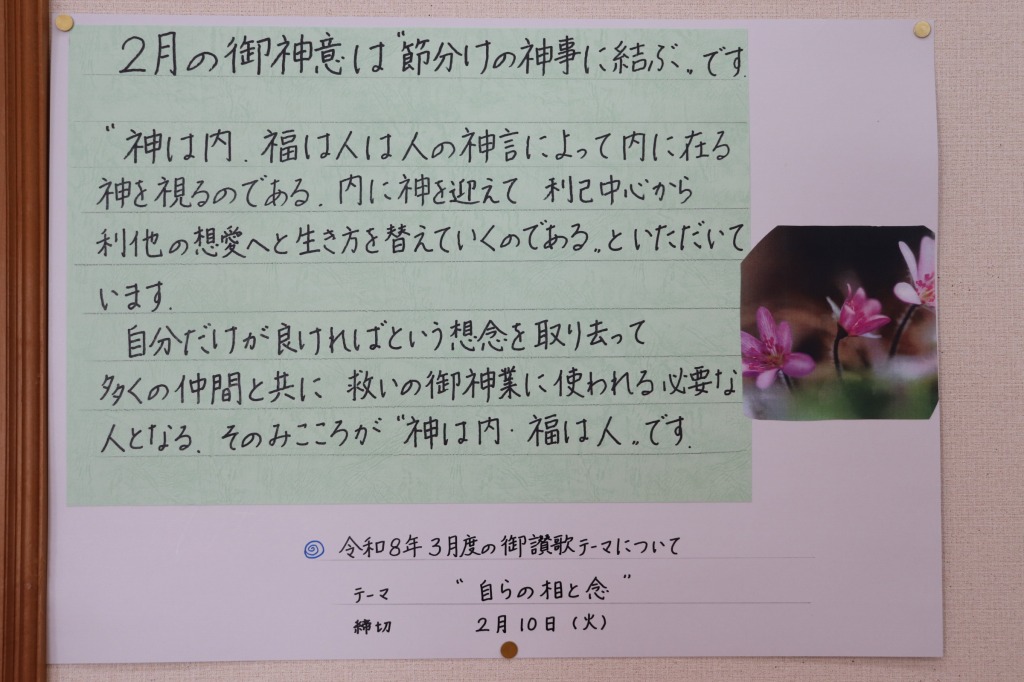 2月の御神意は〝節分けの神事に結ぶ〟です.
〝神は内.福は人は人の神言によって内に在る
神を視るのである.内に神を迎えて 利己中心から
利他の想愛へと生き方を替えていくのである〟といただいて
います.
自分だけが良ければという想念を取り去って
多くの仲間と共に 救いの御神業に使われる必要な
人となる.そのみこころが〝神は内・福は人〟です.
令和8年3月度の御讃歌テーマについて
テーマ “自らの相と念”
締切 2月10日(火)